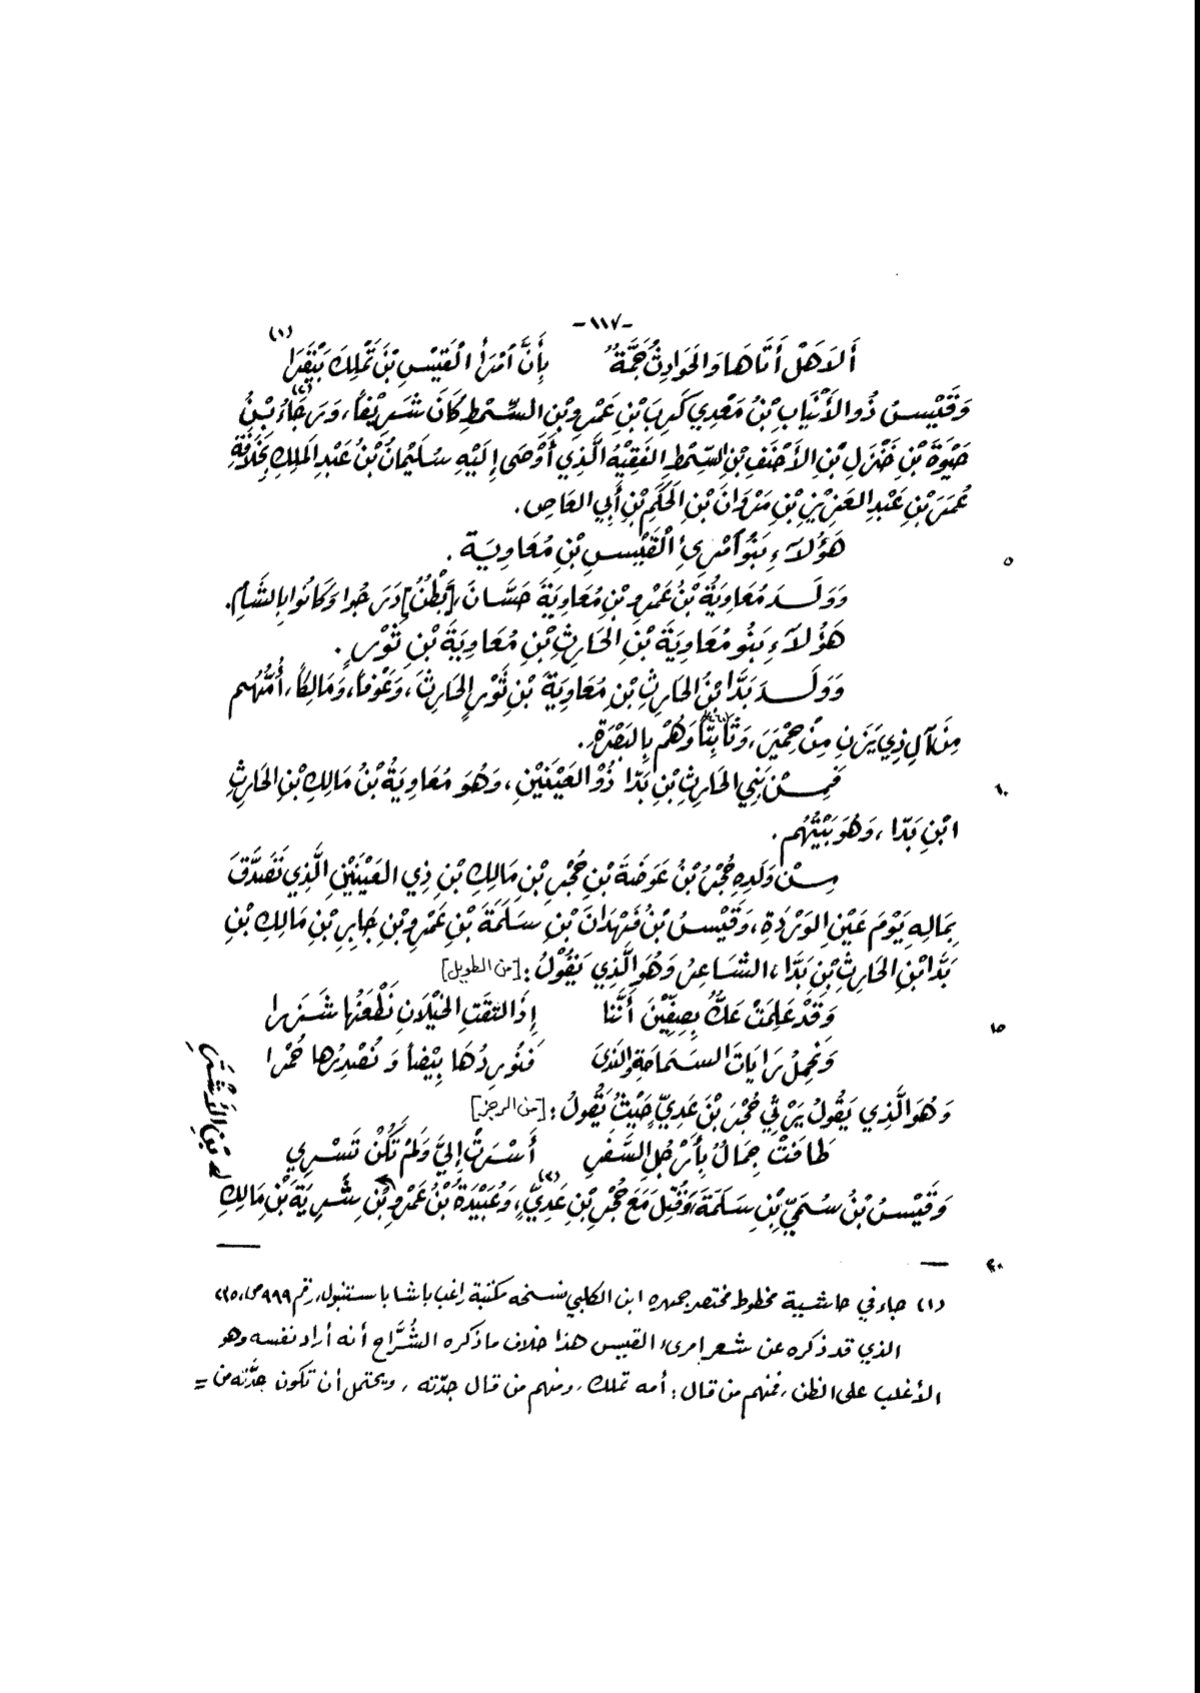 -١١٧-
أَلَا هَلْ أَتَاهَا وَالحَوَادِثُ جَمَّةٌ بِأَنَّ امْرَأَ القَيْسِ بْنَ تَمْلِكَ بَيْقَرَا (١)
وَقَيْسُ ذُو الأَنْيَابِ بْنُ مَعْدِي كَرِبَ ابْنِ عَمْرِو بْنِ السِّمْطِ كَانَ شَرِيْفاً، وَرَجَاءُ (٢) بْنُ
حَيْوَةَ بْنِ خَنْزَلِ بْنِ الأَحْنَفِ بْنِ السِّمْطِ الفَقِيْهُ الَّذِي أَوْصَى إِلَيْهِ سُلَيْمَانُ بْنُ عَبْدِ المَلِكِ بِخِلَافَةِ
عُمَرَ بْنِ عَبْدِ العَزِيْزِ بْنِ مَرْوَانَ بْنِ الحَكَمِ بْنِ أَبِي العَاصِ.
هَؤُلَاءِ بَنُو امْرِئِ القَيْسِ بْنِ مُعَاوِيَةَ. ٥
وَوَلَدَ مُعَاوِيَةُ بْنُ عَمْرِو بْنِ مُعَاوِيَةَ حَسَّانَ، [بَطْنٌ] دَرَجُوا وَكَانُوا بِالشَّامِ.
هَؤُلَاءِ بَنُو مُعَاوِيَةَ بْنِ الحَارِثِ بْنِ مُعَاوِيَةَ بْنِ ثَوْرٍ.
وَوَلَدَ بَدَّا بْنُ الحَارِثِ بْنِ مُعَاوِيَةَ بْنِ ثَوْرٍ الحَارِثَ، وَعَوْفاً، وَمَالِكاً، أُمُّهُم
مِنْ آلِ ذِي يَزَنِ مِنْ حِمْيَرَ، وَثَابِتاً وَهُمْ بِالبَصْرَةِ.
فَمِنْ بَنِي الحَارِثِ بْنِ بَدَّا ذُو العَيْنَيْنِ، وَهُوَ مُعَاوِيَةُ بْنُ مَالِكِ بْنِ الحَارِثِ ١٠
ابْنِ بَدَّا، وَهُوَ بَيْتُهُم.
مِنْ وَلَدِهِ حُجْرُ بْنُ عَوَضَةَ بْنِ حُجْرِ بْنِ مَالِكِ بْنِ ذِي العَيْنَيْنِ الَّذِي تَصَدَّقَ
بِمَالِهِ يَوْمَ عَيْنِ الوَرْدَةِ، وَقَيْسُ بْنُ فَهْدَانَ بْنِ سَلَمَةَ بْنِ عَمْرِو بْنِ جَابِرِ بْنِ مَالِكِ بْنِ
بَدَّا ابْنِ الحَارِثِ بْنِ بَدَّا، الشَّاعِرُ وَهُوَ الَّذِي يَقُوْلُ: [من الطويل]
وَقَدْ عَلِمَتْ عَكٌّ بِصِفِّيْنَ أَنَّنَا إِذَا التَقَتِ الخَيْلَانِ نَطْعَنُهَا شَزَرا ١٥
وَنَحْمِلُ رَايَاتَ السَّمَاحَةِ وَالنَّدَى فَنُوْرِدُهَا بِيْضاً وَنُصْدِرُهَا حُمْرا
وَهُوَ الَّذِي يَقُولُ يَرْثِي حُجْرَ بْنَ عَدِيٍّ حَيْثُ يَقُولُ: [من الرجز]
طَافَتْ جِمَالٌ بِأَرْجُلِ السَّفْرِ أَسْرَتْ إِلَيَّ وَلَمْ تَكُنْ تَسْرِي
وَقَيْسُ بْنُ سُمَيِّ بْنِ سَلَمَةَ، وَقُتِلَ مَعَ حُجْرِ بْنِ عَدِيٍّ (٣)، وَعُبَيْدَةُ بْنُ عَمْرِو بْنِ شُرَيَّةَ بْنِ مَالِكِ
بْنِ الأَرْتَيِ
٢٠
(١) جاء في حاشية مخطوط مختصر جمهرة ابن الكلبي نسخة مكتبة راغب باشا باستنبول، رقم ٩٩٩ ص، ٢٣٥
الذي قد ذكره عن شعر امرىء القيس هذا خلاف ما ذكره الشُرَّاح أنه أراد نفسه وهو
الأغلب على الظن، فمنهم من قال: أمه تملك، ومنهم من قال جدّته، ويحتمل أن تكون جدَّته من =